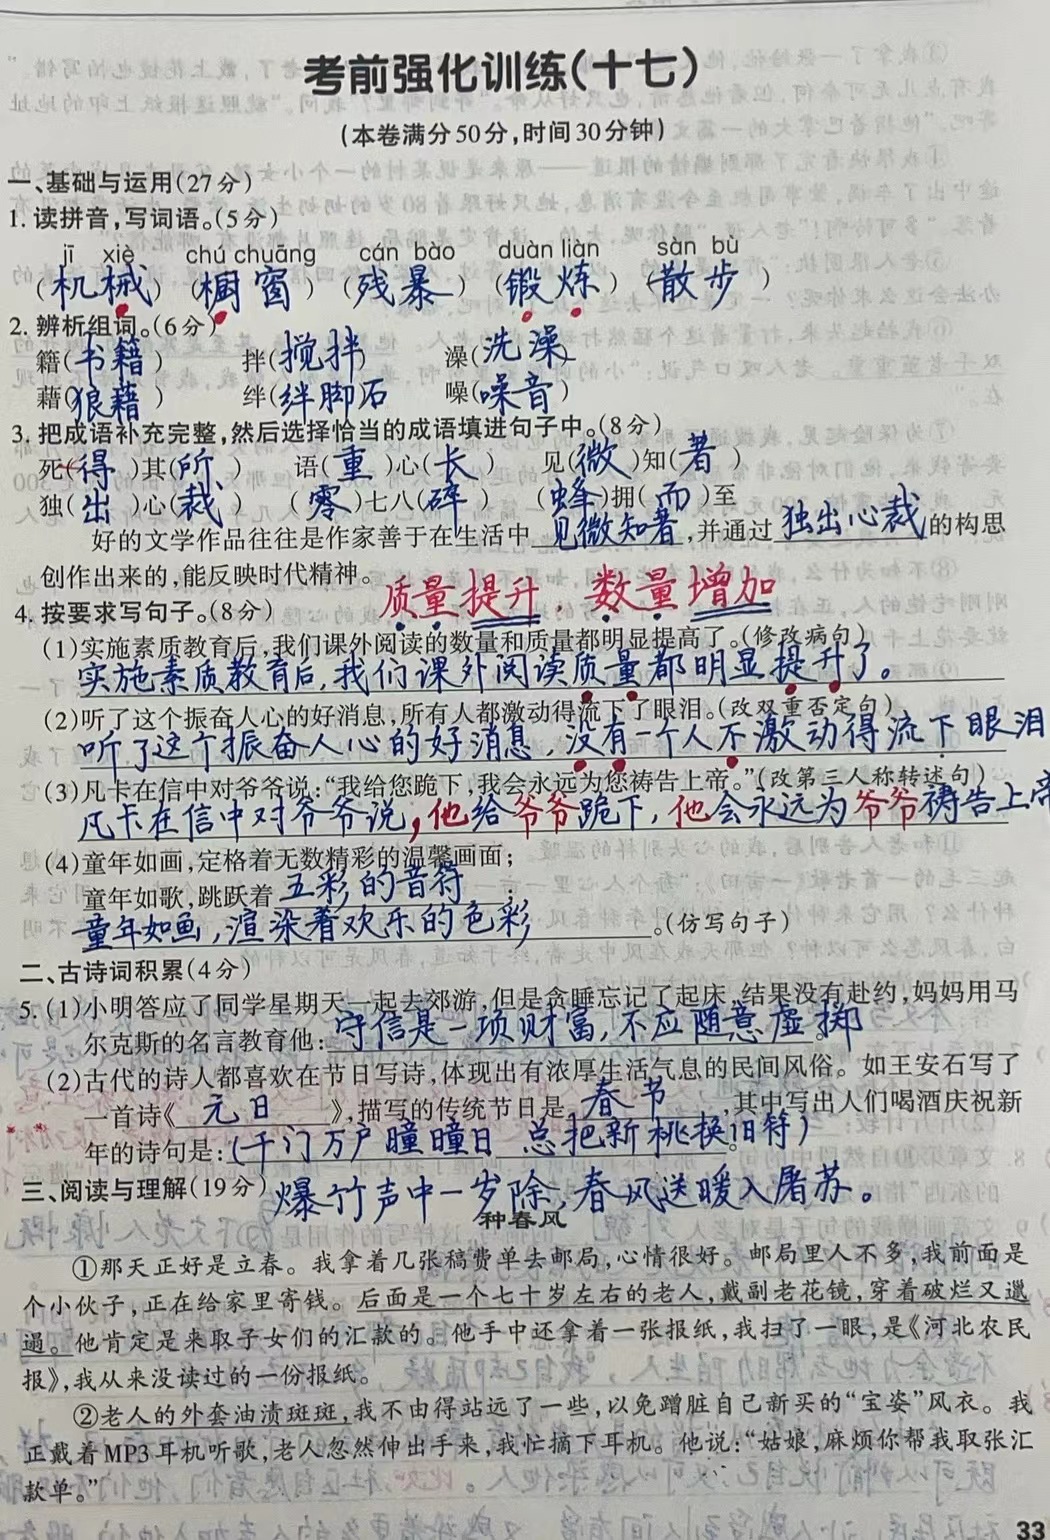 考前强化训练(十七)
(本卷满分50分,时间30分钟)
一、基础与运用(27分)
1. 读拼音,写词语。(5分)
jī xiè chú chuāng cán bào duàn liàn sàn bù
(机械) (橱窗) (残暴) (锻炼) (散步)
2. 辨析组词。(6分)
籍(书籍) 拌(搅拌) 澡(洗澡)
藉(狼藉) 绊(绊脚石) 噪(噪音)
3. 把成语补充完整,然后选择恰当的成语填进句子中。(8分)
死(得)其(所) 语(重)心(长) 见(微)知(著)
独(出)心(裁) (零)七八(碎) (蜂)拥(而)至
好的文学作品往往是作家善于在生活中 见微知著 ,并通过 独出心裁 的构思
创作出来的,能反映时代精神。
质量提升 数量增加
4. 按要求写句子。(8分)
(1)实施素质教育后,我们课外阅读的数量和质量都明显提高了。(修改病句)
实施素质教育后,我们课外阅读质量都明显提升了。
(2)听了这个振奋人心的好消息,所有人都激动得流下了眼泪。(改双重否定句)
听了这个振奋人心的好消息,没有一个人不激动得流下眼泪
(3)凡卡在信中对爷爷说:“我给您跪下,我会永远为您祷告上帝。”(改第三人称转述句)
凡卡在信中对爷爷说,他给爷爷跪下,他会永远为爷爷祷告上帝
(4)童年如画,定格着无数精彩的温馨画面;
童年如歌,跳跃着 五彩的音符 ;
童年如画,渲染着欢乐的色彩 。(仿写句子)
二、古诗词积累(4分)
5. (1)小明答应了同学星期天一起去郊游,但是贪睡忘记了起床,结果没有赴约,妈妈用马
尔克斯的名言教育他: 守信是一项财富,不应随意虚掷 。
(2)古代的诗人都喜欢在节日写诗,体现出有浓厚生活气息的民间风俗。如王安石写了
一首诗《 元日 》,描写的传统节日是 春节 ,其中写出人们喝酒庆祝新
年的诗句是:(千门万户曈曈日 总把新桃换旧符) 。
三、阅读与理解(19分)
爆竹声中一岁除,春风送暖入屠苏。
种春风
①那天正好是立春。我拿着几张稿费单去邮局,心情很好。邮局里人不多,我前面是
个小伙子,正在给家里寄钱。后面是一个七十岁左右的老人,戴副老花镜,穿着破烂又邋
遢。他肯定是来取子女们的汇款的。他手中还拿着一张报纸,我扫了一眼,是《河北农民
报》,我从来没读过的一份报纸。
②老人的外套油渍斑斑,我不由得站远了一些,以免蹭脏自己新买的“宝姿”风衣。我
正戴着MP3耳机听歌,老人忽然伸出手来,我忙摘下耳机。他说:“姑娘,麻烦你帮我取张汇
款单。”
33